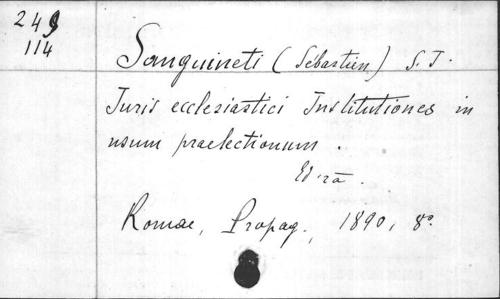 249
114
Sanguineti (Sébastien) S. J.
Juris ecclesiastici Institutiones in
usum praelectionum.
Ed. 2a.
Romae, Propag., 1890, 8°.